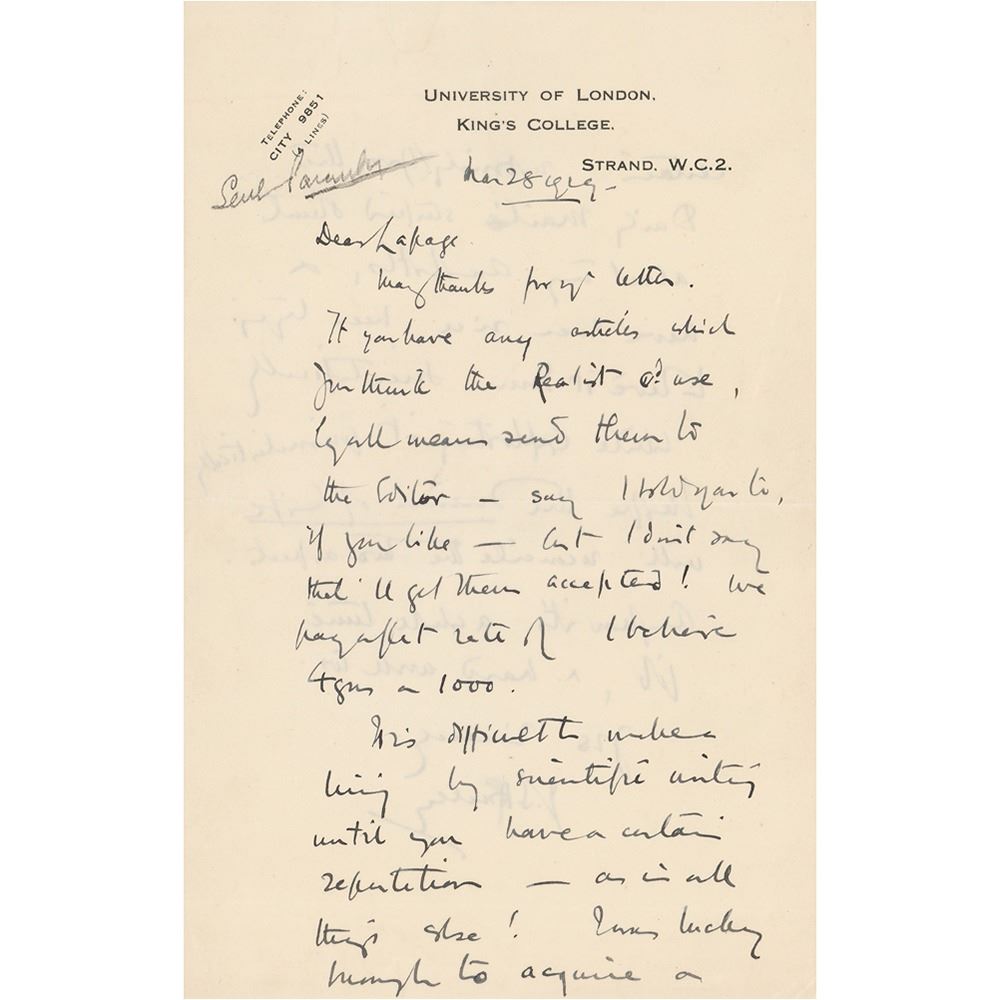 UNIVERSITY OF LONDON.
KING'S COLLEGE.
STRAND. W.C.2.
TELEPHONE:
CITY 9851
(4 LINES)
Mar 28 1929.
Dear Lapage
Many thanks for yr letter.
If you have any articles which
you think the Realist cd use,
by all means send them to
the Editor — say I told you to,
if you like — but I don't say
that'll get them accepted! We
pay a flat rate of I believe
4gns a 1000.
It is difficult to make a
living by scientific writing
until you have a certain
reputation — as in all
things else! I was lucky
enough to acquire a